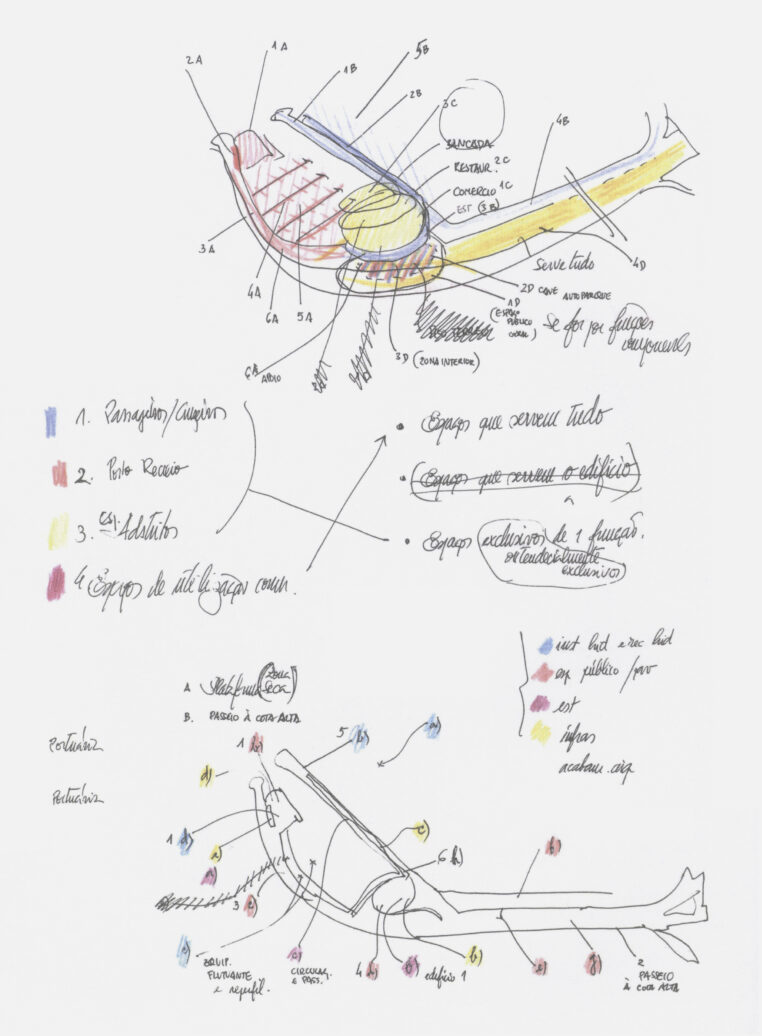 1A
2A
5B
1B
2B
3C
4B
BANCADA
RESTAUR. 2C
COMERCIO 1C
EST (3B)
3A
4A
6A
5A
Serve tudo
4D
2D CAVE AUTO PARQUE
1D
(ESPAÇO PÚBLICO GERAL)
se for por funções
componentes
3D (ZONA INTERIOR)
APOIO
1. Passageiros/Cruzeiros
2. Porto Recreio
3. Adstritos
4 Espaços de utilização comum.
• Espaços que servem tudo
• (Espaços que servem o edifício)
• Espaços exclusivos de 1 função.
ou tendencialmente
exclusivos
inst hid e rec hid
esp público/
est
infras
A Plataforma (ZONA SECA)
B. PASSEIO À COTA ALTA
Portuária
Portuária
5 b)
a)
1 b)
d)
1 d)
a)
a)
c)
6 h)
3 c)
EQUIP.
FLUTUANTE
e reperfil.
c)
CIRCULAÇ.
E PASS.
4 a)
b) edifício 1
b)
e)
g)
2
PASSEIO
À COTA ALTA